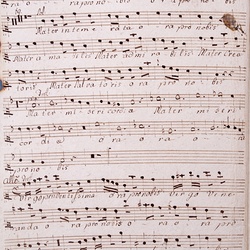 ora pro nobis ora pro nobis
Mater inteme rata o ra pro nobis
Mater amabilis Mater admirabilis Mater Crea
toris Mater Salvatoris ora pro nobis
Mater miseri cordiæ Mater miseri
cordiæ ora ora
pro nobis
Virgo prudentissima ora pro nobis Virgo Vene
randa ora pro nobis o ra pro nobis